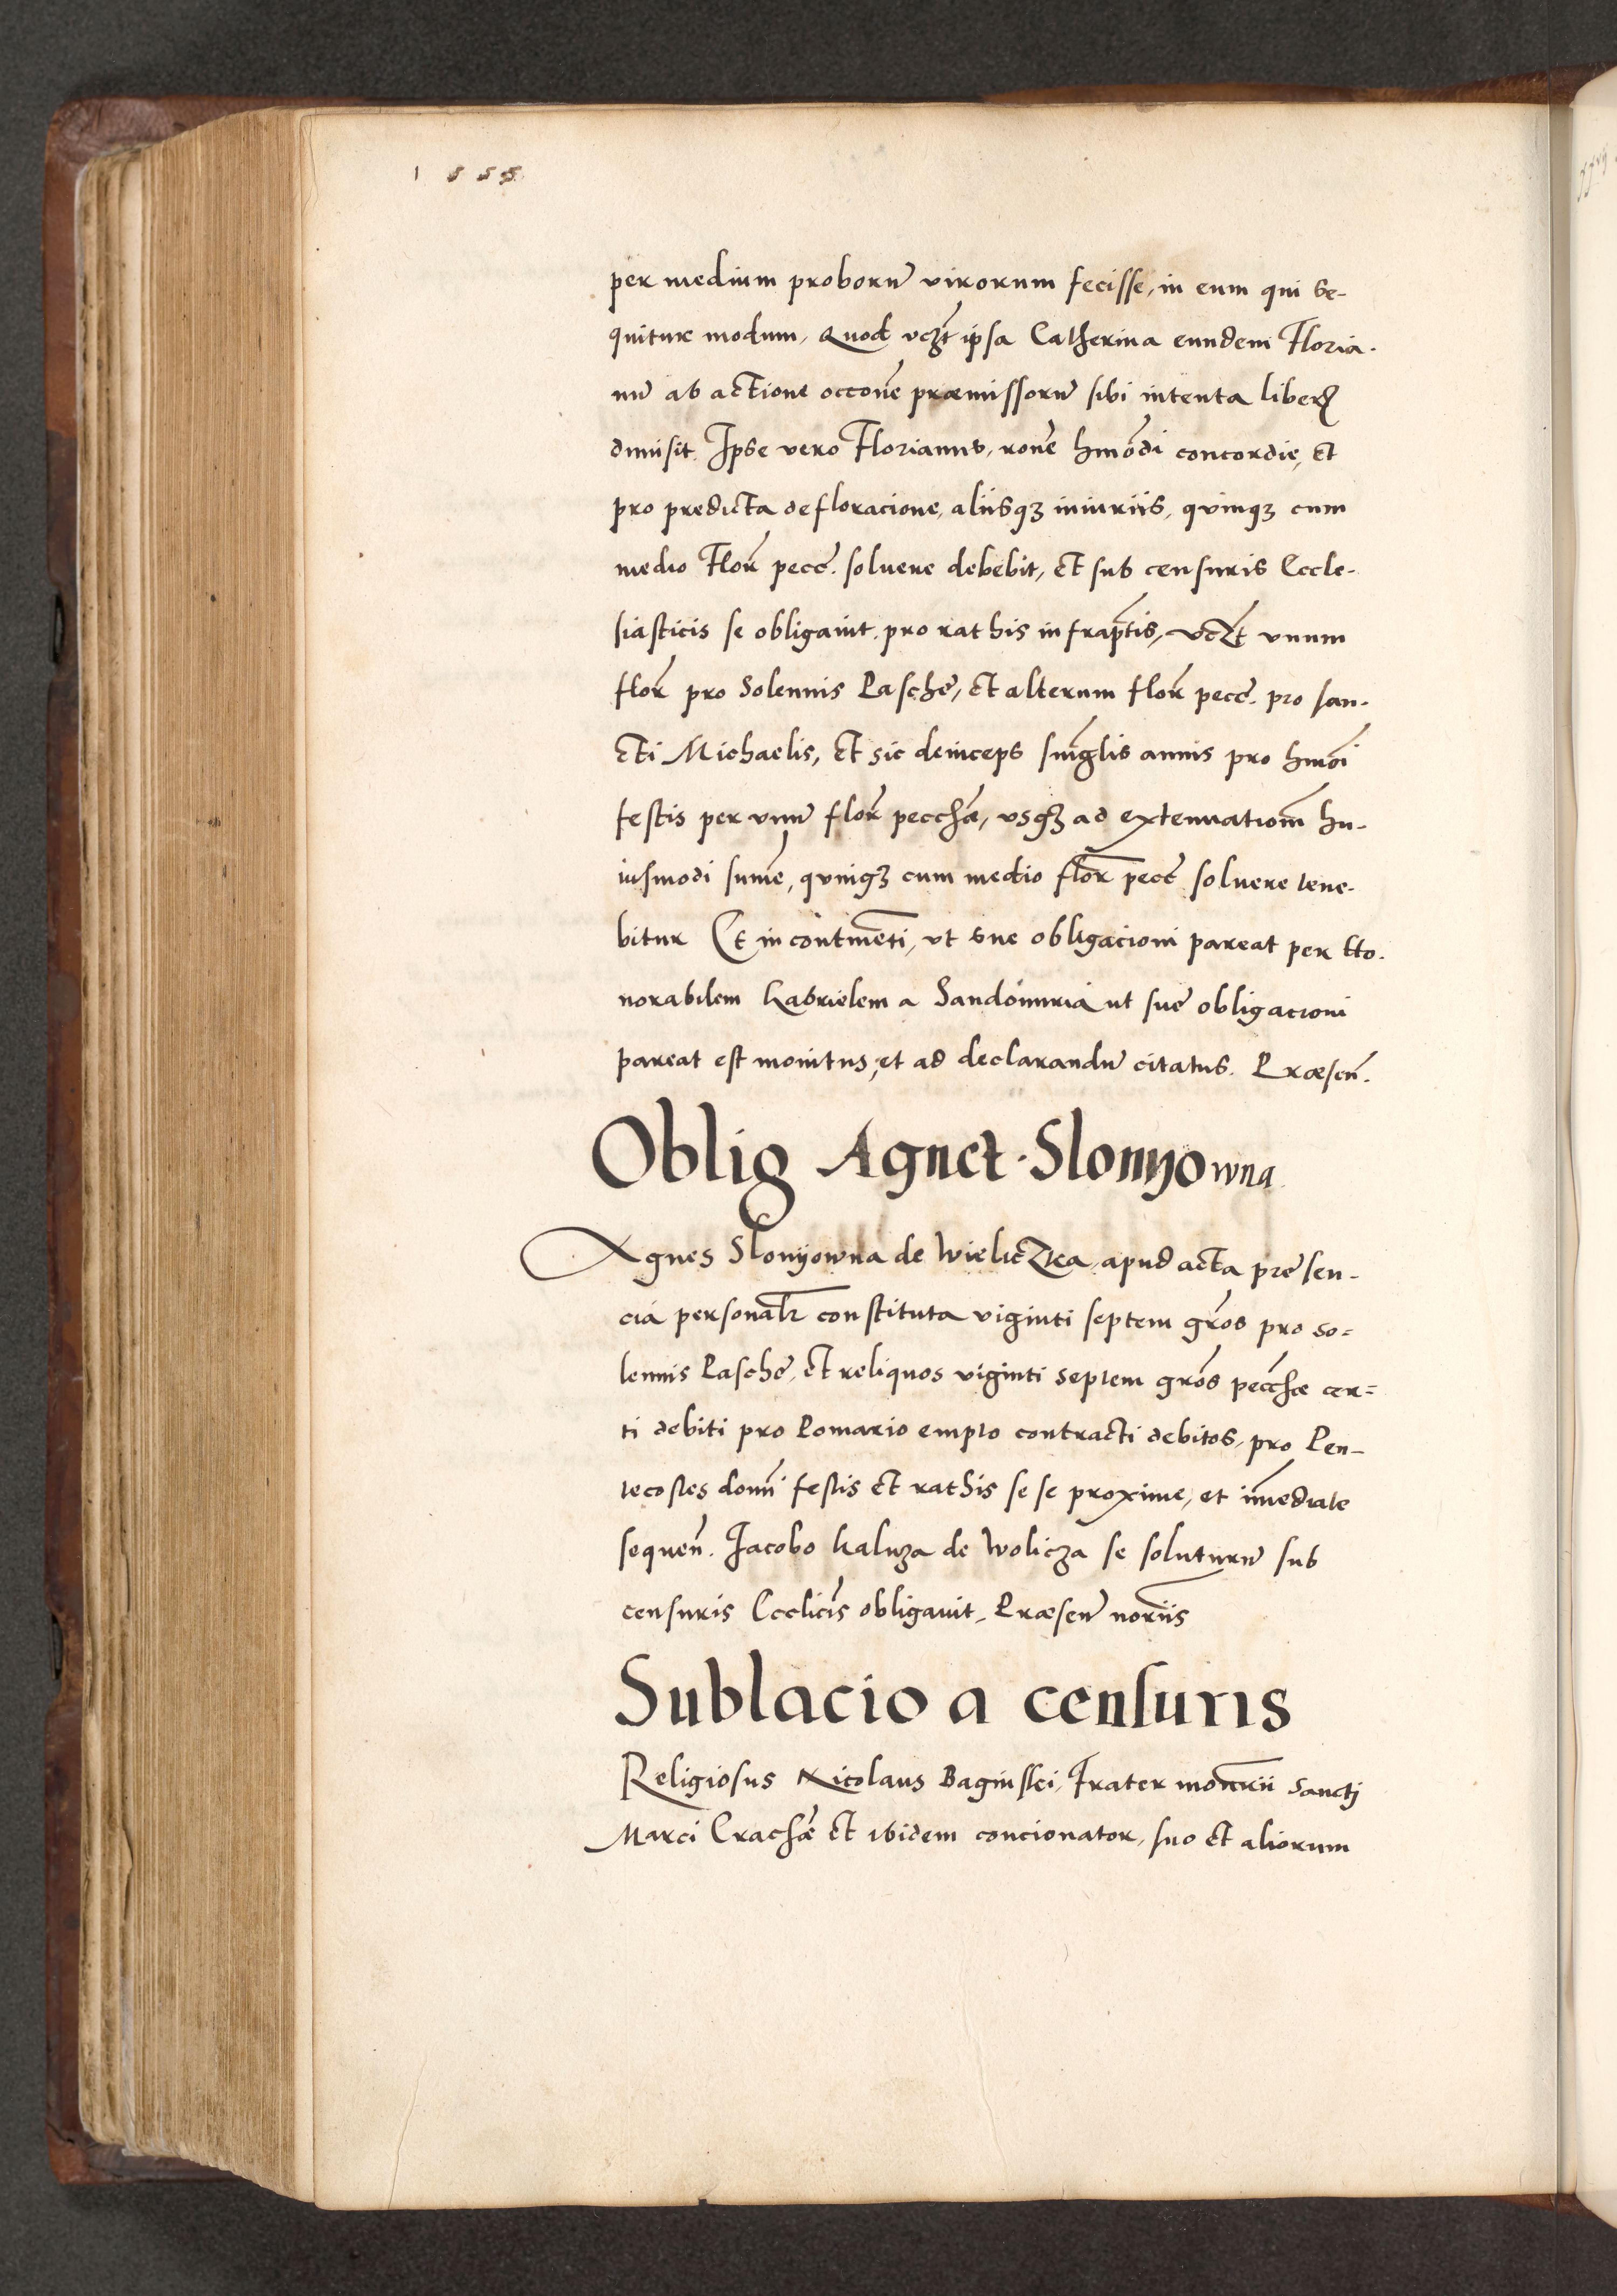 1555
per medium proborũ virorum fecisse, in eum qui se-
quitur modum, Quod vczt ipsa Catherina eundem Floria-
nũ ab actione occone præmissorũ sibi intenta liber
dimisit. Ipse vero Florianus, rone hmodi concordie, et
pro predicta defloracione, aliisqȝ iniuriis, quinqȝ cum
medio Flor pecc. soluere debebit, et sub censuris Eccle-
siasticis se obligauit, pro rathis infraptis, vczt vnum
flor pro Solennis Paschę, et alterum flor pecc. pro san-
cti Michaelis, et sic deinceps singlis annis pro hmoi
festis per vnũ flor pecchæ, vsqȝ ad extenuationem hu-
iusmodi sumę, quinqȝ cum medio flor pecc soluere tene-
bitur Et in continenti, vt suę obligacioni pareat per Ho-
norabilem Gabrielem a Sandomiria ut suę obligacioni
pareat est monitus, et ad declarandũ citatus. Præsen.
Oblig Agnet. Slonyowna
Agnes Slonyowna de Wieliczka apud acta presen-
cia personalr constituta viginti septem gros pro so=
lennis Paschę, et reliquos viginti septem gros pecchæ cer=
ti debiti pro Pomario empto contracti debitos, pro Pen-
tecostes domi festis et rathis se se proxime, et imediate
sequen. Jacobo Kaluza de Wolicza se soluturũ sub
censuris Ecclicis obligauit, Præsen noriis
Sublacio a censuris
Religiosus Nicolaus Baginskei, Frater monrii Sancti
Marci Crachæ et ibidem concionator, suo et aliorum